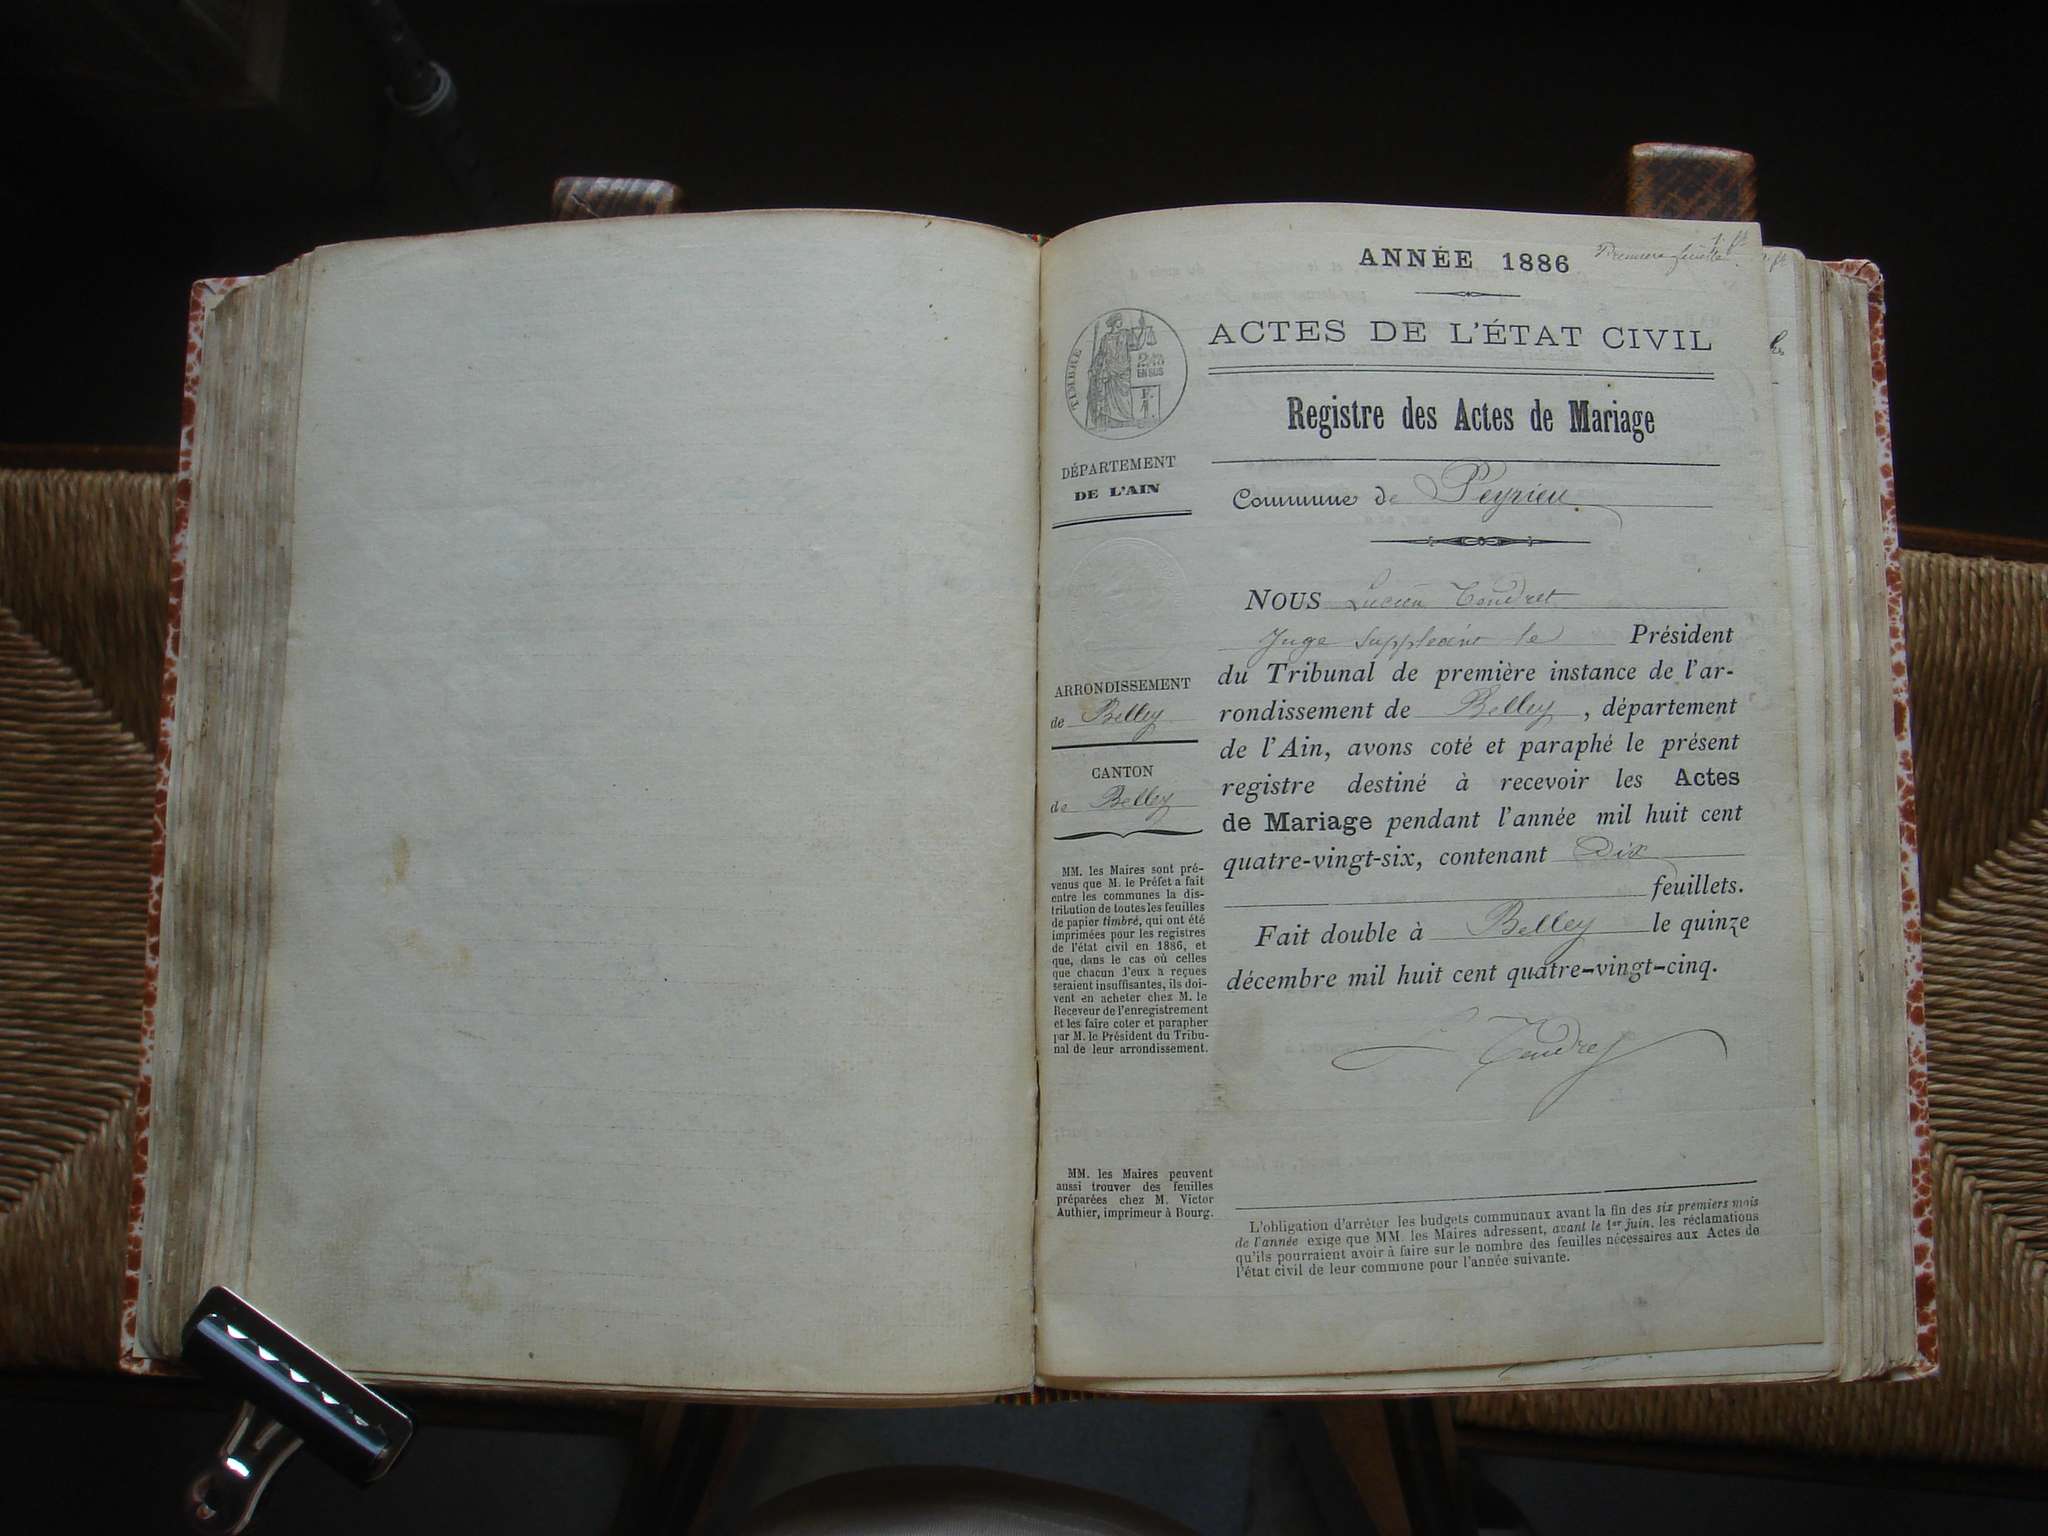 ANNÉE 1886
Premiere feuille
ACTES DE L'ÉTAT CIVIL
Registre des Actes de Mariage
Commune de Peyrieu
TIMBRE
2/10
EN SUS
DÉPARTEMENT
DE L'AIN
ARRONDISSEMENT
de Belley
CANTON
de Belley
MM. les Maires sont pré-
venus que M. le Préfet a fait
entre les communes la dis-
tribution de toutes les feuilles
de papier timbré, qui ont été
imprimées pour les registres
de l'état civil en 1886, et
que, dans le cas où celles
que chacun d'eux a reçues
seraient insuffisantes, ils doi-
vent en acheter chez M. le
Receveur de l'enregistrement
et les faire coter et parapher
par M. le Président du Tribu-
nal de leur arrondissement.
MM. les Maires peuvent
aussi trouver des feuilles
préparées chez M. Victor
Authier, imprimeur à Bourg.
NOUS Lucien Tendret
Juge suppléant le Président
du Tribunal de première instance de l'ar-
rondissement de Belley, département
de l'Ain, avons coté et paraphé le présent
registre destiné à recevoir les Actes
de Mariage pendant l'année mil huit cent
quatre-vingt-six, contenant Dix
feuillets.
Fait double à Belley le quinze
décembre mil huit cent quatre-vingt-cinq.
Tendret
L'obligation d'arrêter les budgets communaux avant la fin des six premiers mois
de l'année exige que MM. les Maires adressent, avant le 1er juin, les réclamations
qu'ils pourraient avoir à faire sur le nombre des feuilles nécessaires aux Actes de
l'état civil de leur commune pour l'année suivante.